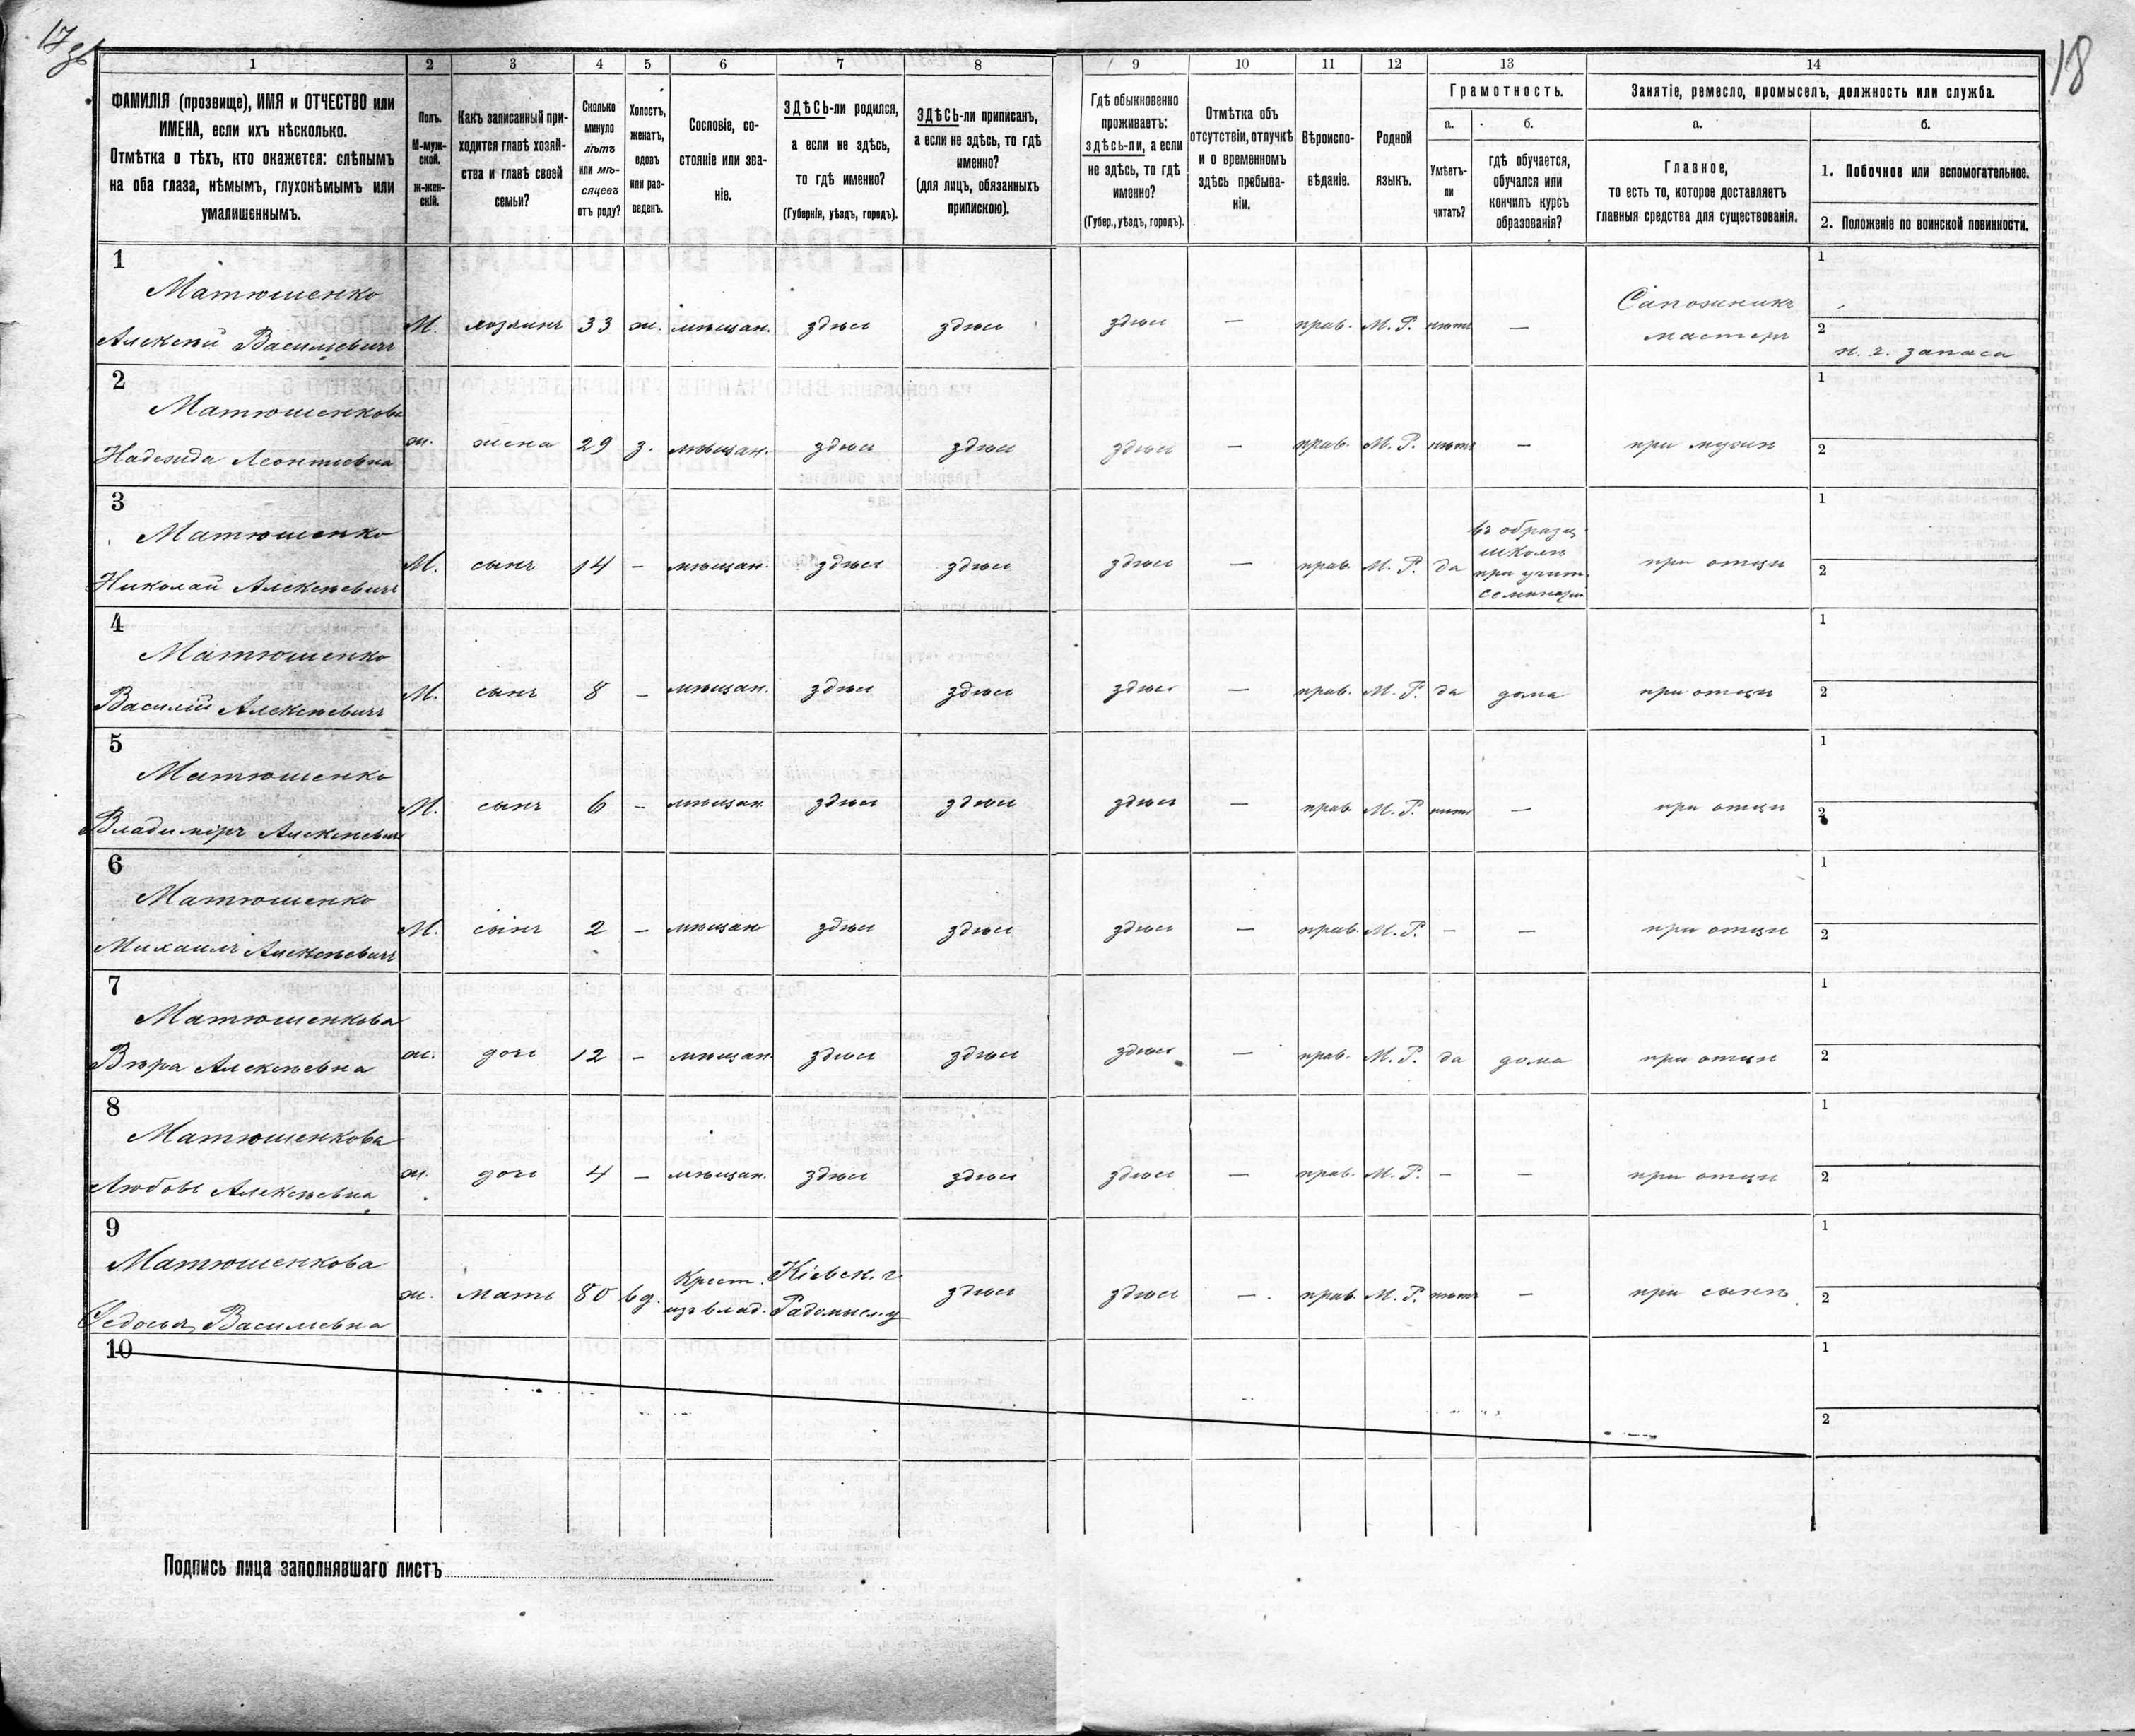 17 об
18
1 2 3 4 5 6 7 8 9 10 11 12 13 14
ФАМИЛІЯ (прозвище), ИМЯ и ОТЧЕСТВО или
ИМЕНА, если ихъ нѣсколько.
Отмѣтка о тѣхъ, кто окажется: слѣпымъ
на оба глаза, нѣмымъ, глухонѣмымъ или
умалишеннымъ.
Полъ.
М-муж-
ской.
ж-жен-
скій.
Какъ записанный при-
ходится главѣ хозяй-
ства и главѣ своей
семьи?
Сколько
минуло
лѣтъ
или мѣ-
сяцевъ
отъ роду?
Холостъ,
женатъ,
вдовъ
или раз-
веденъ.
Сословіе, со-
стояніе или зва-
ніе.
ЗДѢСЬ-ли родился,
а если не здѣсь,
то гдѣ именно?
(Губернія, уѣздъ, городъ).
ЗДѢСЬ-ли приписанъ,
а если не здѣсь, то гдѣ
именно?
(для лицъ, обязанныхъ
припискою).
Гдѣ обыкновенно
проживаетъ:
здѣсь-ли, а если
не здѣсь, то гдѣ
именно?
(Губер., уѣздъ, городъ).
Отмѣтка объ
отсутствіи, отлучкѣ
и о временномъ
здѣсь пребыва-
ніи.
Вѣроиспо-
вѣданіе.
Родной
языкъ.
Грамотность.
а.
Умѣетъ-
ли
читать?
б.
гдѣ обучается,
обучался или
кончилъ курсъ
образованія?
Занятіе, ремесло, промыселъ, должность или служба.
а.
Главное,
то есть то, которое доставляетъ
главныя средства для существованія.
б.
1. Побочное или вспомогательное.
2. Положеніе по воинской повинности.
1
Матюшенко
Алексѣй Васильевичъ
М. хозяинъ 33 ж. мѣщан. здѣсь здѣсь здѣсь — прав. М. Р. нѣтъ —
Сапожникъ
мастеръ
1
2
н. ч. запаса
2
Матюшенкова
Надежда Леонтьевна
ж. жена 29 з. мѣщан. здѣсь здѣсь здѣсь — прав. М. Р. нѣтъ — при мужѣ
1
2
3
Матюшенко
Николай Алексѣевичъ
М. сынъ 14 — мѣщан. здѣсь здѣсь здѣсь — прав. М. Р. да
въ образц.
школѣ
при учит.
семинаріи
при отцѣ
1
2
4
Матюшенко
Василій Алексѣевичъ
М. сынъ 8 — мѣщан. здѣсь здѣсь здѣсь — прав. М. Р. да дома при отцѣ
1
2
5
Матюшенко
Владиміръ Алексѣевичъ
М. сынъ 6 — мѣщан. здѣсь здѣсь здѣсь — прав. М. Р. нѣтъ — при отцѣ
1
2
6
Матюшенко
Михаилъ Алексѣевичъ
М. сынъ 2 — мѣщан здѣсь здѣсь здѣсь — прав. М. Р. — — при отцѣ
1
2
7
Матюшенкова
Вѣра Алексѣевна
ж. дочь 12 — мѣщан. здѣсь здѣсь здѣсь — прав. М. Р. да дома при отцѣ
1
2
8
Матюшенкова
Любовь Алексѣевна
ж. дочь 4 — мѣщан. здѣсь здѣсь здѣсь — прав. М. Р. — — при отцѣ
1
2
9
Матюшенкова
Ѳедосья Васильевна
ж. мать 80 вд.
Крест.
изъ влад.
Кіевск. г.
Радомысл. у
здѣсь здѣсь — прав. М. Р. нѣтъ — при сынѣ
1
2
10
1
2
Подпись лица заполнявшаго листъ